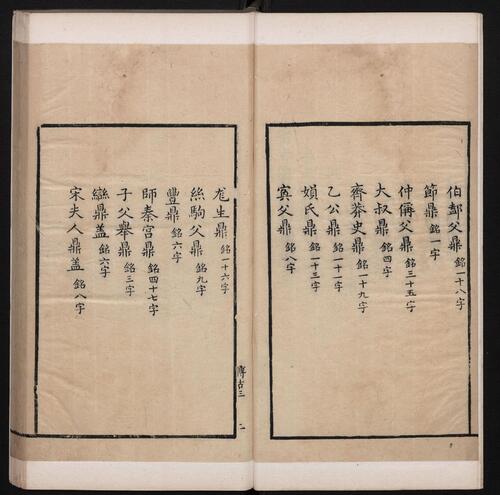 伯䣄父鼎 銘一十八字
節鼎 銘一字
仲偁父鼎 銘三十五字
大叔鼎 銘四字
齊莽史鼎 銘一十九字
乙公鼎 銘一十一字
娟氏鼎 銘一十三字
寅父鼎 銘八字
尨生鼎 銘一十六字
絲駒父鼎 銘九字
豐鼎 銘六字
師秦宫鼎 銘四十七字
子父舉鼎 銘三字
䜌鼎蓋 銘六字
宋夫人鼎蓋 銘八字
博古三 二